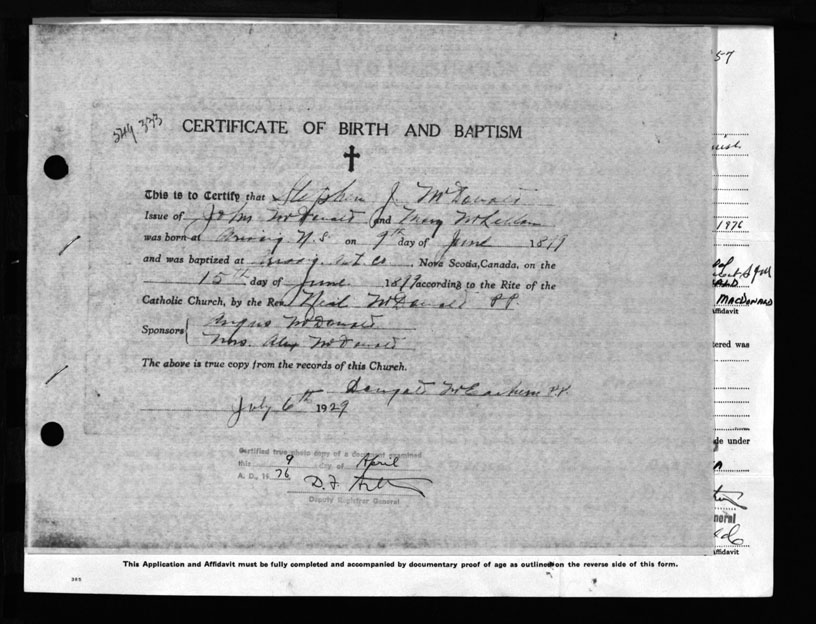 CERTIFICATE OF BIRTH AND BAPTISM
This is to Certify that Stephen J. McDonald
Issue of John McDonald and Mary McLellan
was born at N.S. on 9th day of June 1899
and was baptized at Nova Scotia, Canada, on the
15th day of June 1899 according to the Rite of the
Catholic Church, by the Rev. Neal McDonald P.P.
Sponsors Angus McDonald
Mrs. Alex McDonald
The above is true copy from the records of this Church.
P.P.
July 6th 1929
Certified true photo copy of a document examined
this 9 day of April
A. D., 19 76 D. F.
Deputy Registrar General
57
1976
ALD
MACDONALD
ffidavit
tered was
de under
neral
ffidavit
This Application and Affidavit must be fully completed and accompanied by documentary proof of age as outlined on the reverse side of this form.